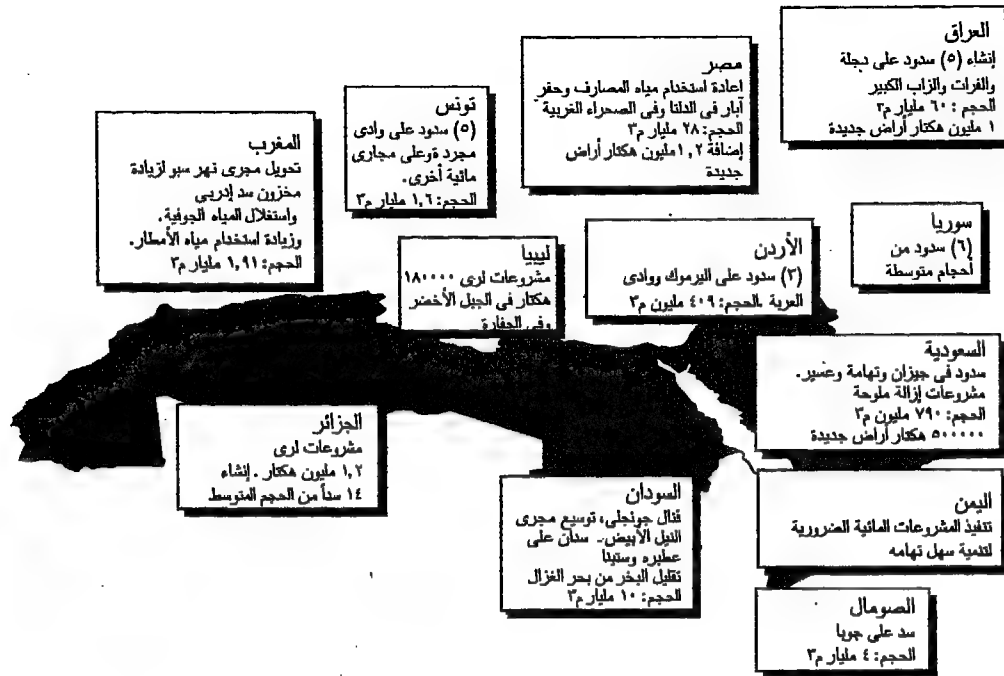 العراق
إنشاء (٥) سدود على دجلة
والفرات والزاب الكبير
الحجم : ٦٠ مليار م٣
١ مليون هكتار أراض جديدة
مصر
اعادة استخدام مياه المصارف وحفر
آبار فى الدلتا وفى الصحراء الغربية
الحجم: ٢٨ مليار م٣
إضافة ١,٢ مليون هكتار أراض
جديدة
تونس
(٥) سدود على وادى
مجرد ة وعلى مجارى
مائية أخرى.
الحجم: ١,٦ مليار م٣
المغرب
تحويل مجرى نهر سبو لزيادة
مخزون سد إدريى
واستغلال المياه الجوفية.
وزيادة استخدام مياه الأمطار.
الحجم: ١,٩١ مليار م٣
سوريا
(٦) سدود من
أحجام متوسطة
الأردن
(٣) سدود على اليرموك ووادى
العربة .الحجم: ٤٠٩ مليون م٣
ليبيا
مشروعات لرى ١٨٠٠٠٠
هكتار فى الجبل الأخضر
وفى الجفارة
السعودية
سدود فى جيزان وتهامة وعسير.
مشروعات إزالة ملوحة
الحجم: ٧٩٠ مليون م٣
٥٠٠٠٠٠ هكتار أراض جديدة
الجزائر
مشروعات لرى
١,٢ مليون هكتار . إنشاء
١٤ سداً من الحجم المتوسط
السودان
قنال جونجلى، توسيع مجرى
النيل الأبيض.. سدان على
عطبره وستيتا
تقليل البخر من بحر الغزال
الحجم: ١٠ مليار م٣
اليمن
تنفيذ المشروعات المائية الضرورية
لتنمية سهل تهامه
الصومال
سد على جوبا
الحجم: ٤ مليار م٣